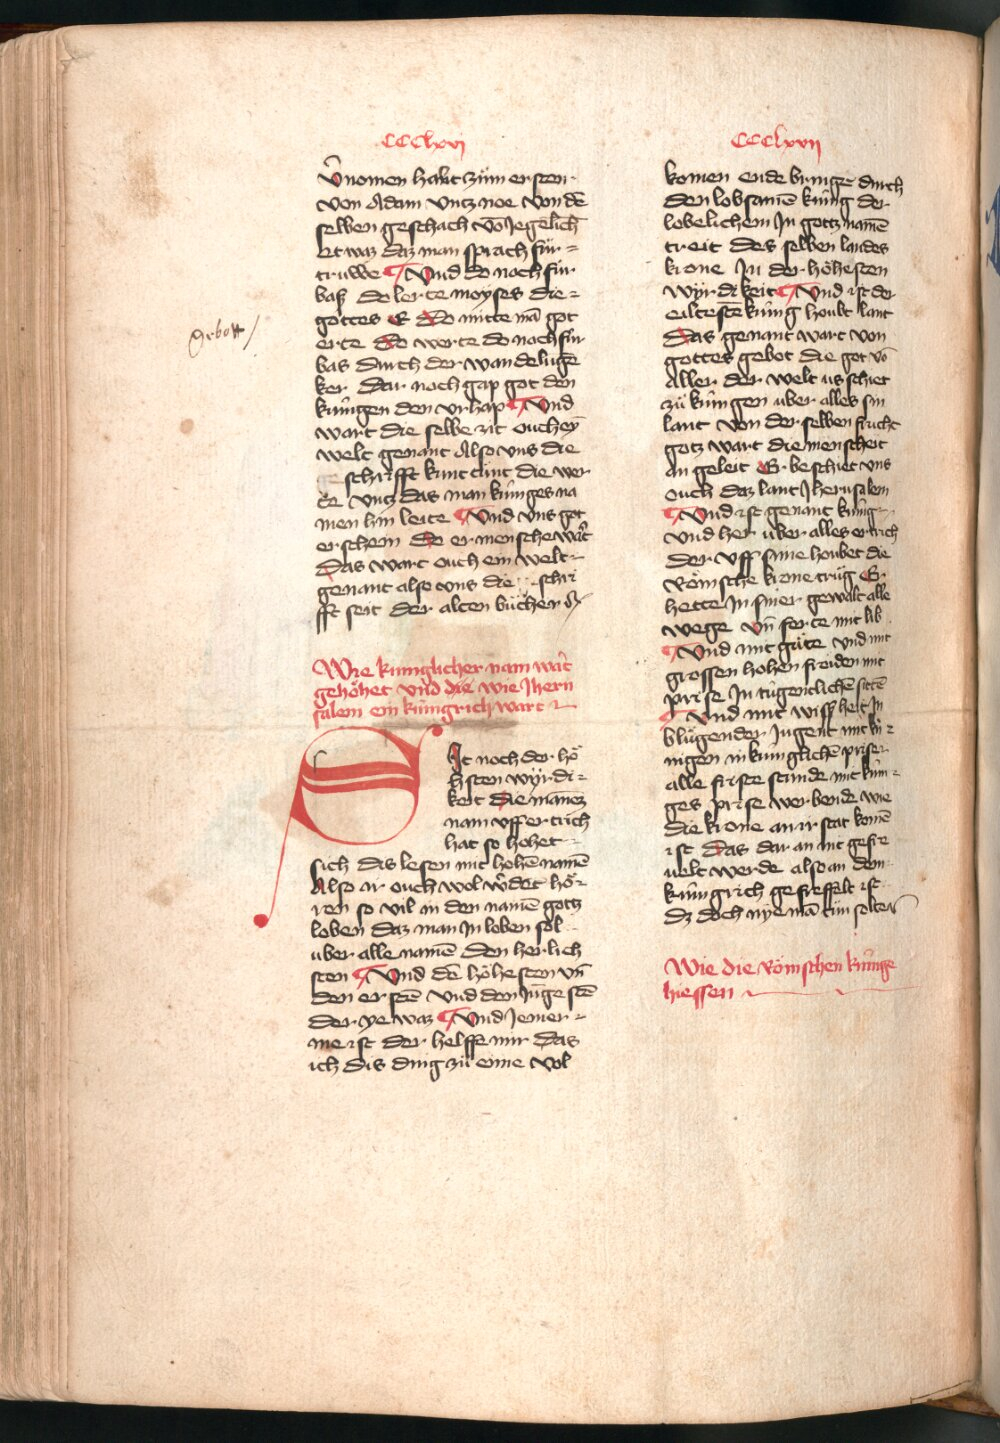 CCClxvi
v̂nomen habt zům ersten
von Adam vntz noe von dē
selben geschach vō Jegelich
et waz daz man sprach für
truwe ¶ Vnd do noch für
baß do lerte moyses die
gottes E do mitte mā got
erte do werte do noch für
bas durch der wandelūge
ker Dar noch gap got den
kűnigen den vrhap ¶ Vnd
wart die selbe zit ouch eȳ
welt genant Also vns die
geschrifft kunt tůnt die wer
te vntz das man kűniges na
men hin leite ¶ Vnd vns got
erschein do er mensche wart
Das wart ouch ein welt
genant also vns die schri
fft seit der alten bůcher
gebott
Wie kuniglicher nam wart
gehöhet vnd die wie Jheru
salem ein kűnigrich wart
SIt noch der hö
hsten wyrdi
keit die mānes
nam vff ertrich
hat so hohet
sich dis lesen mit hohē namē
Also ir ouch wol w̓det hö
ren so vil in den namē gottz
loben daz man Jn loben sol
uber alle namē den herlich
sten ¶ Vnd dē höhesten vn̄
den erstē vnd den Jungestē
der ye waz ¶ Vnd Jemer
me ist der helffe mir das
ich dis ding zů eime vol
CCClxvii
komen ende bringe durch
den lobsamē kűnig der
lobelichem Jn gottz namē
treit des selben landes
krone Jn der höhesten
wyrdikeit ¶ Vnd ist der
eiltestē kűnig houbt lant
Das genant wart von
gottes gebot die got vō
Aller der welt us schiet
zů kűnigen uber alles sin
lant von der selben frucht
gotz wart die menscheit
an geleit Er beschiet vns
ouch daz lant Jherusalem
¶ Vnd ist genant kűnig
vnd her uber alles ertrich
der vff sime houbet die
Römsche krone trůg Er
hette Jn siner gewalt alle
wege vn̄ forte mit lib
¶ Vnd mit gůte vnd mit
grossen hohen freiden mit
prise Jn tugentlichē sittē
¶ Vnd mit wissheit Jn
blůgender Jugent mit kű
nigen in kűniglichē prise
alle friste stunde mit kűni
ges prise werbende wie
die krone an ir stat komē
ist Das dar an nit gefre
uelt werde also an dem
kűnigrich gefreffelt ist
dz doch nye mā tůn solte
Wie die Römschen kűnige
hiessen